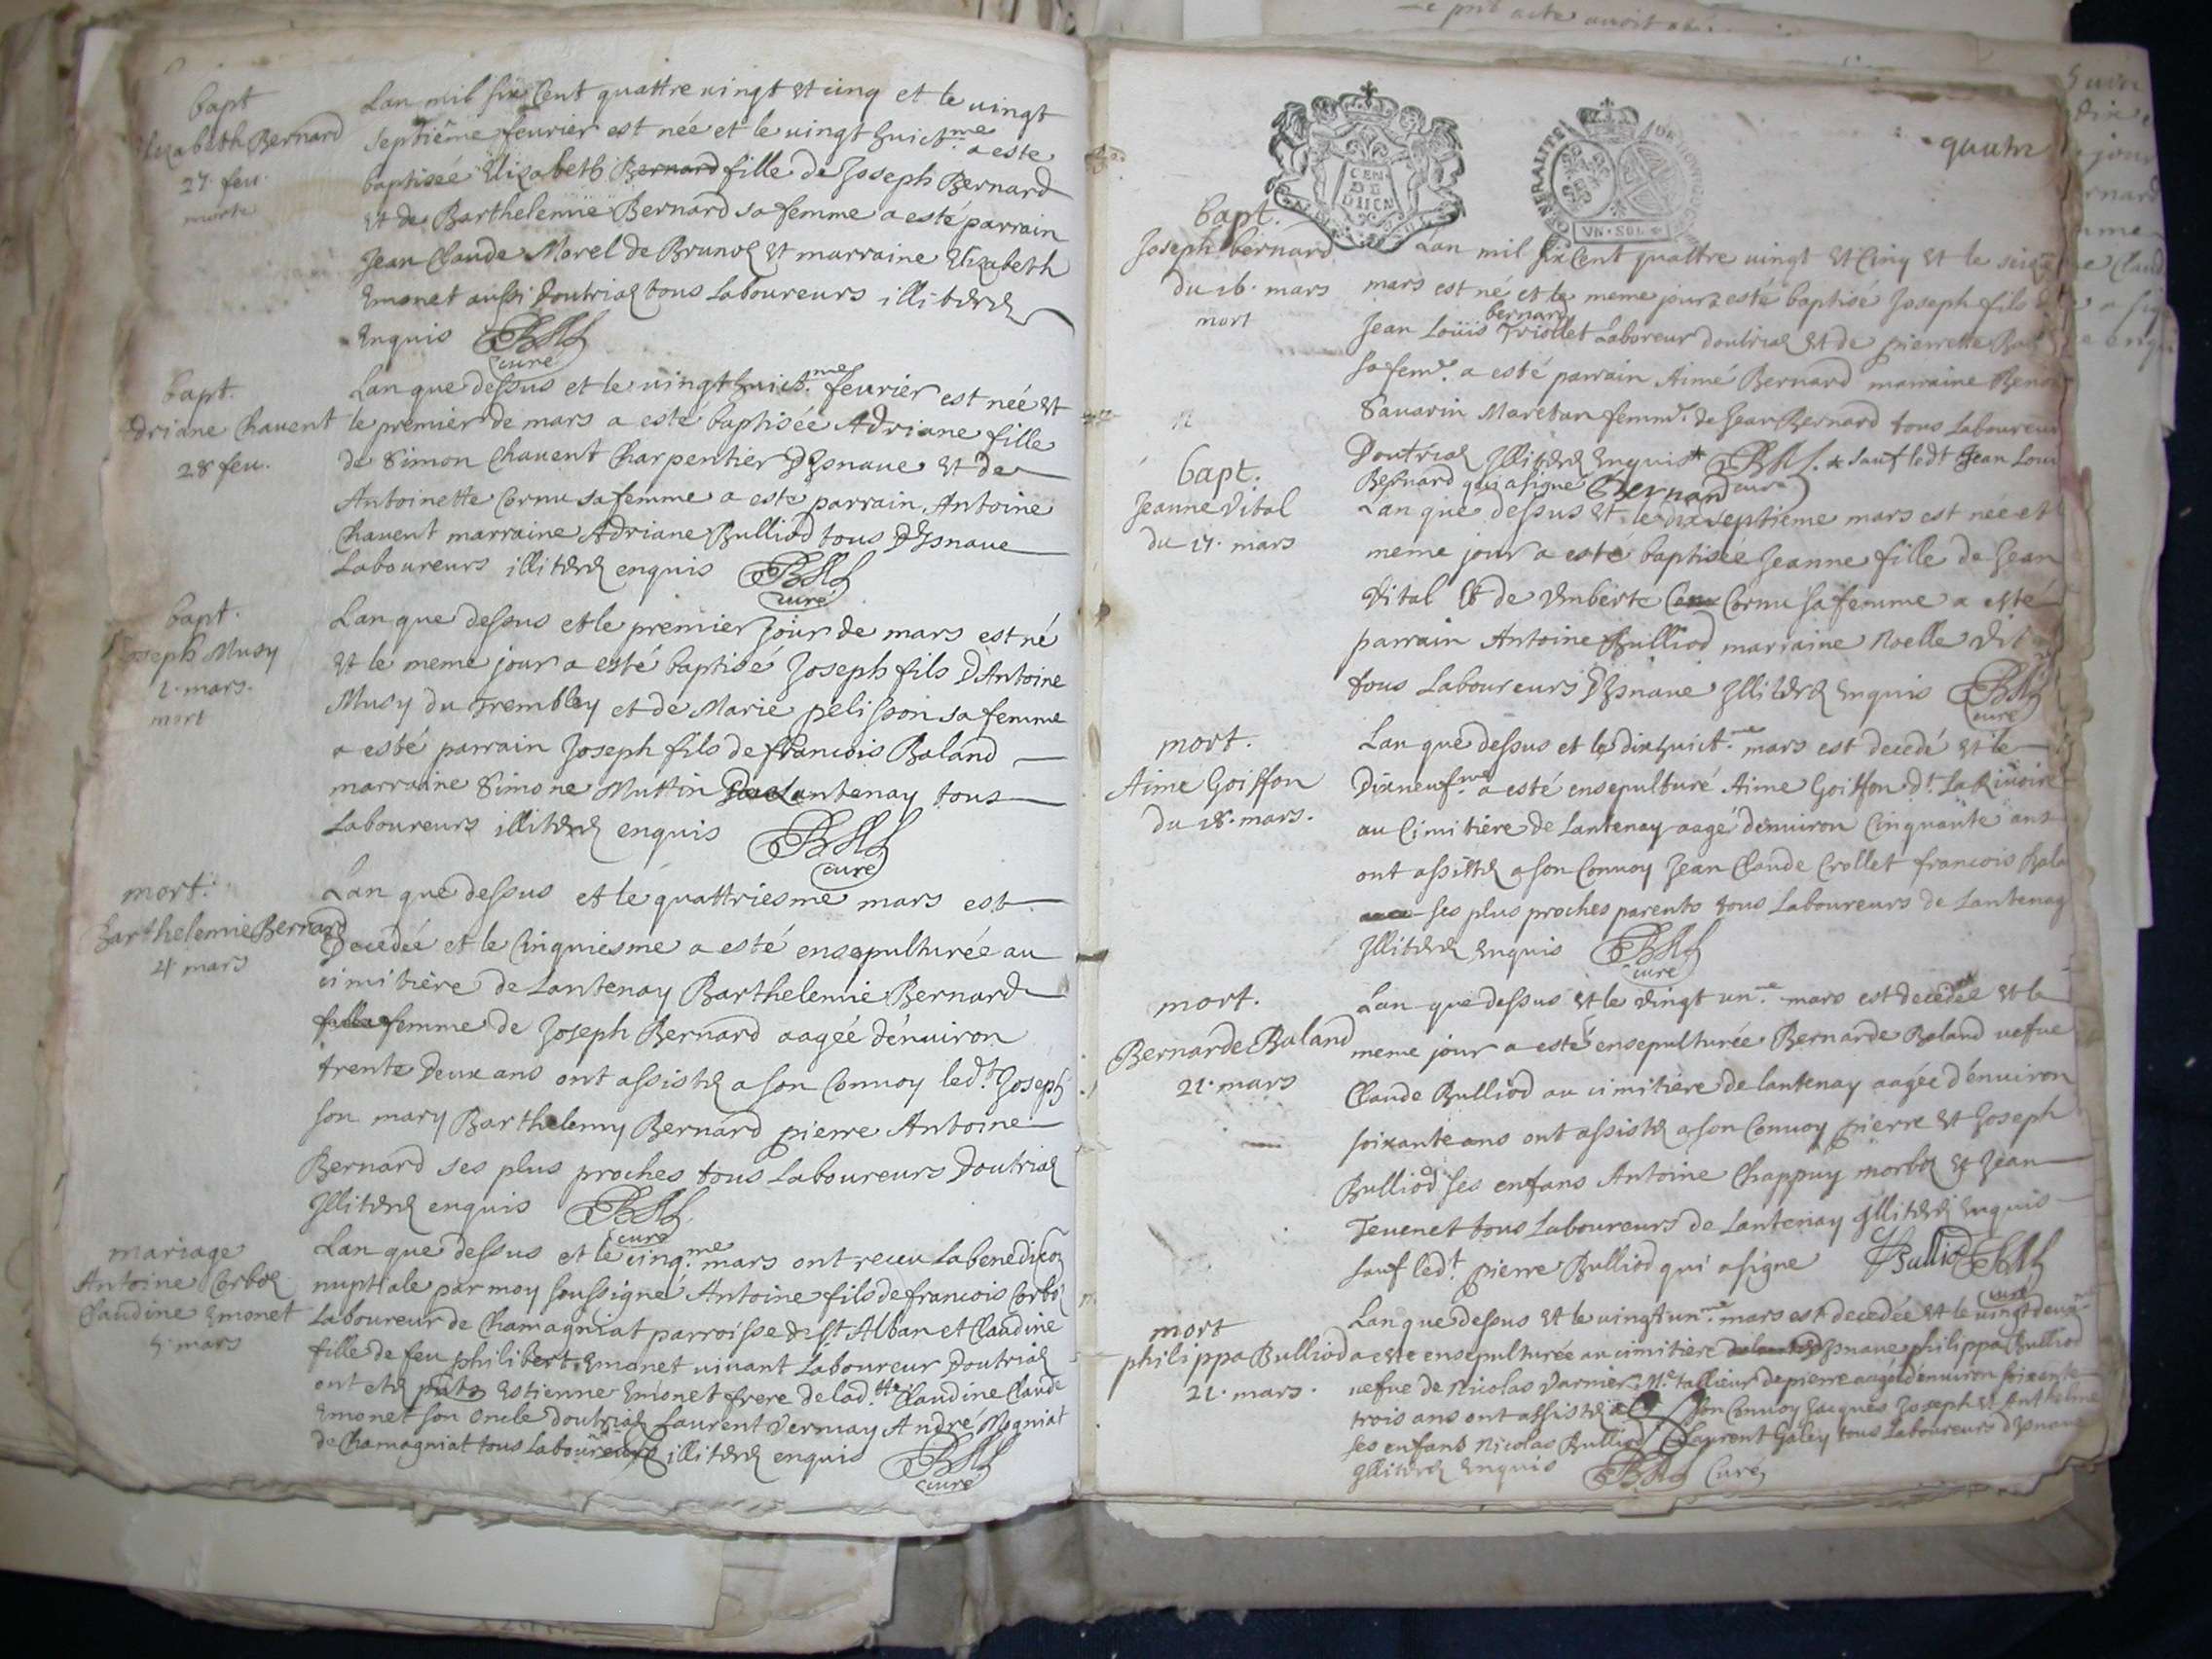 bapt
Elizabeth Bernard
27. feu.
morte
Lan mil six Cent quattre uingt et cinq et le uingt
septiême feurier est née et le uingt huict.me a este
baptisée Elizabeth Bernard fille de Joseph Bernard
et de Barthelemie Bernard sa femme a esté parrain
Jean Claude Morel de Brunod et marraine Elizabeth
Emonet aussi doutriad tous Laboureurs illiterés
Enquis
curé
bapt.
Adriane Chauent
28 feu.
Lan que dessus et le uingt huict.me feurier est née et
le premier de mars a esté baptisée Adriane fille
de Simon Chauent Charpentier DIsnaue et de
Antoinette Cornu sa femme a este parrain Antoine
Chauent marraine Adriane Bulliod tous DIsnaue
Laboureurs illiterés enquis
curé
bapt.
Joseph Musy
1. mars.
mort
Lan que dessus et le premier jour de mars est né
et le meme jour a esté baptisé Joseph fils DAntoine
Musy du Trembley et de Marie pelisson sa femme
a esté parrain Joseph fils de francois Baland
marraine Simone Muttin Lantenay tous
Laboureurs illiterés enquis
curé
mort.
Barthelemie Bernard
4 mars
Lan que dessus et le quattriesme mars est
Decedée et le Cinquiesme a esté ensepulturée au
cimitière de Lantenay Barthelemie Bernard
fille femme de Joseph Bernard aagée dénuiron
trente Deux ans ont assisté a son Conuoy led.t Joseph
son mary Barthelemy Bernard pierre Antoine
Bernard ses plus proches tous Laboureurs Doutriad
Illiterés enquis
curé
mariage
Antoine Corboz
Claudine Emonet
5. mars
Lan que dessus et le cinq.me mars ont receu la benediction
nuptiale par moy soussigné Antoine fils de francois Corboz
Laboureur de Chamagniat parroisse de St Alban et Claudine
fille de feu philibert Emonet uiuant Laboureur Doutriad
ont eté pnts Estienne Emonet frere de lad.tte Claudine Claude
Emonet son Oncle doutriad Laurent Vernay André Mogniat
de Chamagniat tous Laboureurs illiterés enquis
curé
quatre
GENERALITE DE
VN·SOL
bapt.
Joseph bernard
du 16. mars
mort
Lan mil six Cent quattre uingt et Cinq et le seize
mars est né et le meme jour a esté baptisé Joseph fils de
bernard
Jean Loüis Triollet Laboreur doutriad et de pierrette
sa fem.e a esté parrain Aimé Bernard marraine
Sauarin femm.e de Jean Bernard tous Laboureur
Doutriad Illiterés Enquis* * sauf led.t Jean Loui
Bernard qui a signé Bernard curé
bapt.
Jeanne Vital
du 17. mars
Lan que dessus et le dix septieme mars est née et
meme jour a esté baptisée Jeanne fille de Jean
Vital et de Umberte Cornu sa femme a esté
parrain Antoine Bulliod marraine Noelle
tous Laboureurs DIsnaue Illiterés Enquis
curé
mort.
Aimé Goiffon
du 18. mars.
Lan que dessus et le dix huict.me mars est decedé et le
Dixneuf.me a esté ensepulturé Aimé Goiffon d.t La Riuoire
au Cimitière de Lantenay aagé dénuiron Cinquante ans
ont assisté a son Conuoy Jean Claude Crollet francois
ses plus proches parents tous Laboureurs de Lantenay
Illiterés Enquis
curé
mort.
Bernarde Baland
21. mars
Lan que dessus et le vingt un.e mars est decedée et le
meme jour a esté ensepulturée Bernarde Baland uefue
Claude Bulliod au cimitière de lantenay aagée d'enuiron
soixante ans ont assisté a son Conuoy pierre et Joseph
Bulliod ses enfans Antoine Chappuy et Jean
Teuenet tous Laboureurs de Lantenay Illiterés Enquis
sauf led.t pierre Bulliod qui a signé Bulliod
curé
mort
philippa Bulliod
21. mars.
Lan que dessus et le uingt un.me mars est decedée et le uingt deux
a este ensepulturée au cimitière DIsnaue philippa Bulliod
uefue de Nicolas Varnier M.e tallieur de pierre aagée dénuiron soixante
trois ans ont assisté a son Conuoy Jacques Joseph et Anthelme
ses enfans Nicolas Bulliod Laurent Galey tous Laboureurs dIsnaue
Illiterés Enquis Curé